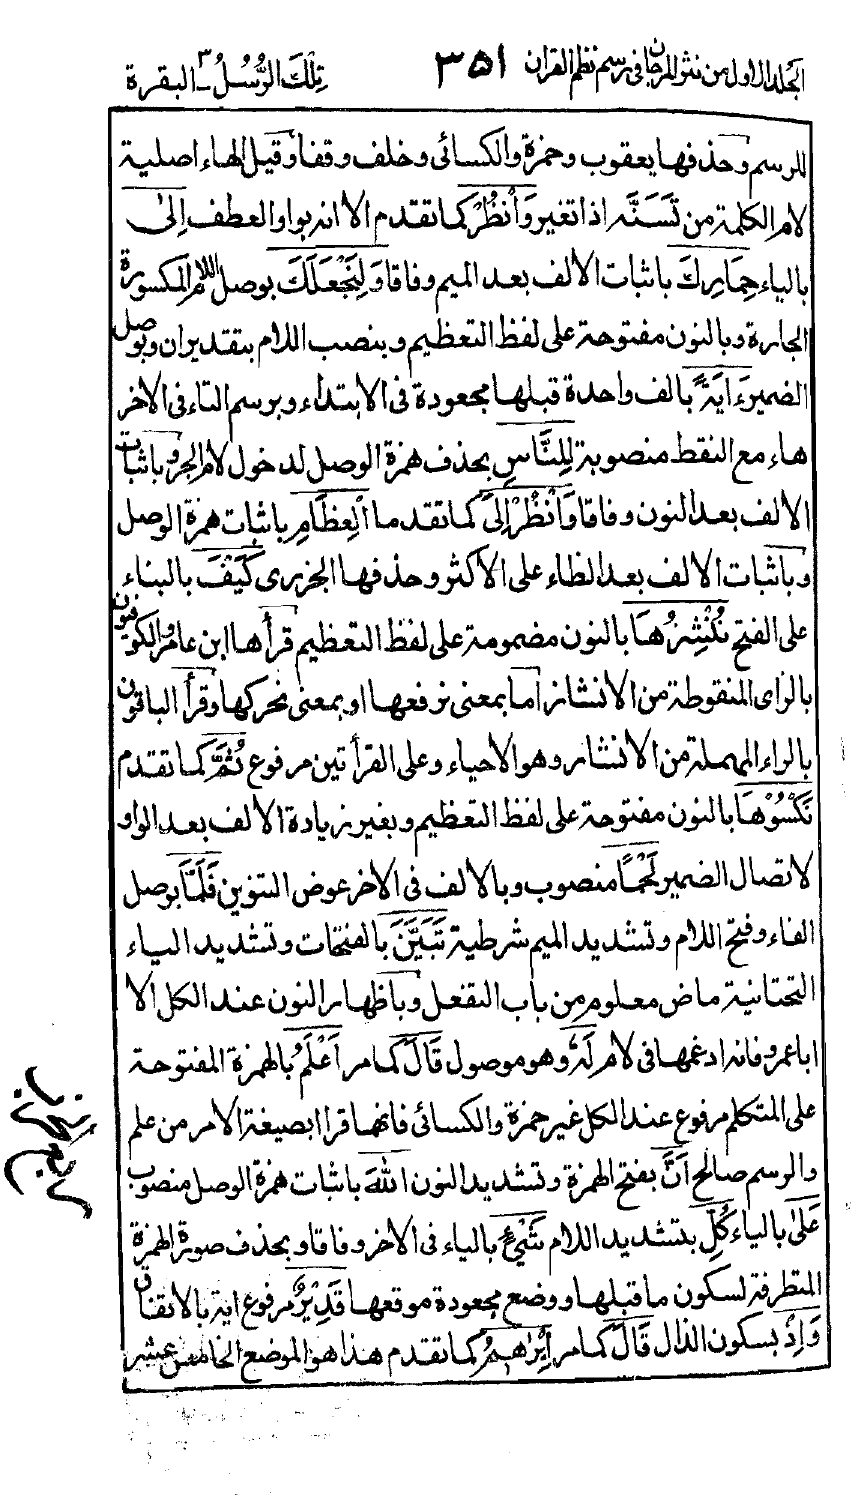 الجلد الاول من نثر المرجان فی رسم نظم القران ٣۵١ تِلْكَ الرُّسُلُ ٣ – البقرة
للرسم وحذفها يعقوب وحمزة والكسائی وخلف وقفا وقيل الهاء اصلية
لام الكلمة من تَسَنَّه اذا تغير وَانْظُرْ كما تقدم الا انه بواو العطف اِلیٰ
بالياء حِمَارِكَ باثبات الالف بعد الميم وفاقا وَلِنَجْعَلَكَ بوصل اللام المكسورة
الجارة وبالنون مفتوحة على لفظ التعظيم وبنصب اللام بتقدير ان وبوصل
الضمير ءَايَةً بالف واحدة قبلها مجعودة فی الابتداء وبرسم التاء فی الاخر
هاء مع النقط منصوبة لِلنَّاسِ بحذف همزة الوصل لدخول لام الجر وباثبات
الالف بعد النون وفاقا وَانْظُرْ اِلیَ كما تقدما الْعِظَامِ باثبات همزة الوصل
وباثبات الالف بعد الظاء على الاكثر وحذفها الجزری كَيْفَ بالبناء
على الفتح نُنْشِزُهَا بالنون مضمومة على لفظ التعظيم قرأها ابن عامر والكوفيون
بالزای المنقوطة من الانشاز اما بمعنى نرفعها او بمعنى نحركها وقرأ الباقون
بالراء المهملة من الانشار وهو الاحياء وعلى القرأتين مرفوع ثُمَّ كما تقدم
نَكْسُوْهَا بالنون مفتوحة على لفظ التعظيم وبغير زيادة الالف بعد الواو
لاتصال الضمير لَحْمًا منصوب وبالالف فی الاخر عوض التنوين فَلَمَّا بوصل
الفاء وفتح اللام وتشديد الميم شرطية تَبَيَّنَ بالفتحات وتشديد الياء
التحتانية ماض معلوم من باب التفعل وباظهار النون عند الكل الا
اباعمرو فانه ادغمها فی لام لَهٗ وهو موصول قَالَ كما مر اَعْلَمُ بالهمزة المفتوحة
على المتكلم مرفوع عند الكل غير حمزة والكسائی فانهما قرا ابصيغة الامر من علم
والرسم صالح اَنَّ بفتح الهمزة وتشديد النون اللّٰهَ باثبات همزة الوصل منصوب
عَلیٰ بالياء كُلِّ بتشديد اللام شَيْءٍ بالياء فی الاخر وفاقا وبحذف صورة الهمزة
المتطرفة لسكون ما قبلها ووضع مجعودة موقعها قَدِيْرٌ مرفوع اية بالاتفاق
وَاِذْ بسكون الذال قَالَ كما مر اِبْرٰهٖمُ كما تقدم هذا هو الموضع الخامس عشر